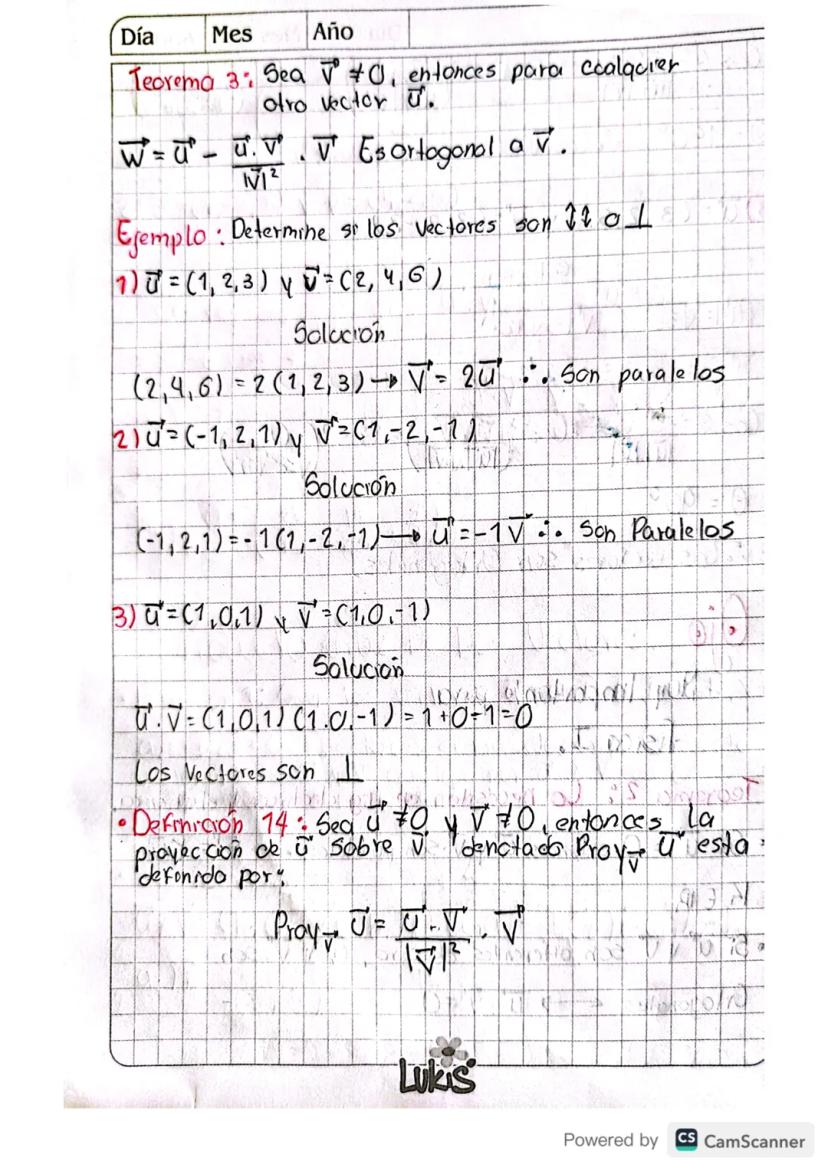 Día Mes Año
Teorema 3: Sea v⃗ ≠ 0, entonces para cualquier
otro vector u⃗.
w⃗ = u⃗ - (u⃗ . v⃗)/|v⃗|² . v⃗ Es ortogonal a v⃗.
Ejemplo: Determine si los vectores son ⇅ o ⊥
1) u⃗ = (1, 2, 3) y v⃗ = (2, 4, 6)
Solución
(2, 4, 6) = 2 (1, 2, 3) → v⃗ = 2u⃗ ∴ Son paralelos
2) u⃗ = (-1, 2, 1) y v⃗ = (1, -2, -1)
Solución
(-1, 2, 1) = -1 (1, -2, -1) → u⃗ = -1 v⃗ ∴ Son Paralelos
3) u⃗ = (1, 0, 1) y v⃗ = (1, 0, -1)
Solución
u⃗ . v⃗ = (1, 0, 1) (1.0, -1) = 1 + 0 ÷ 1 = 0
Los Vectores son ⊥
• Definición 14: Sea u⃗ ≠ 0 y v⃗ ≠ 0, entonces la
proyección de u⃗ sobre v⃗ denotado Proy_v⃗ u⃗ esta
definido por:
Proy_v⃗ u⃗ = (u⃗ . v⃗)/|v⃗|² . v⃗
Lukis
Powered by CS CamScanner